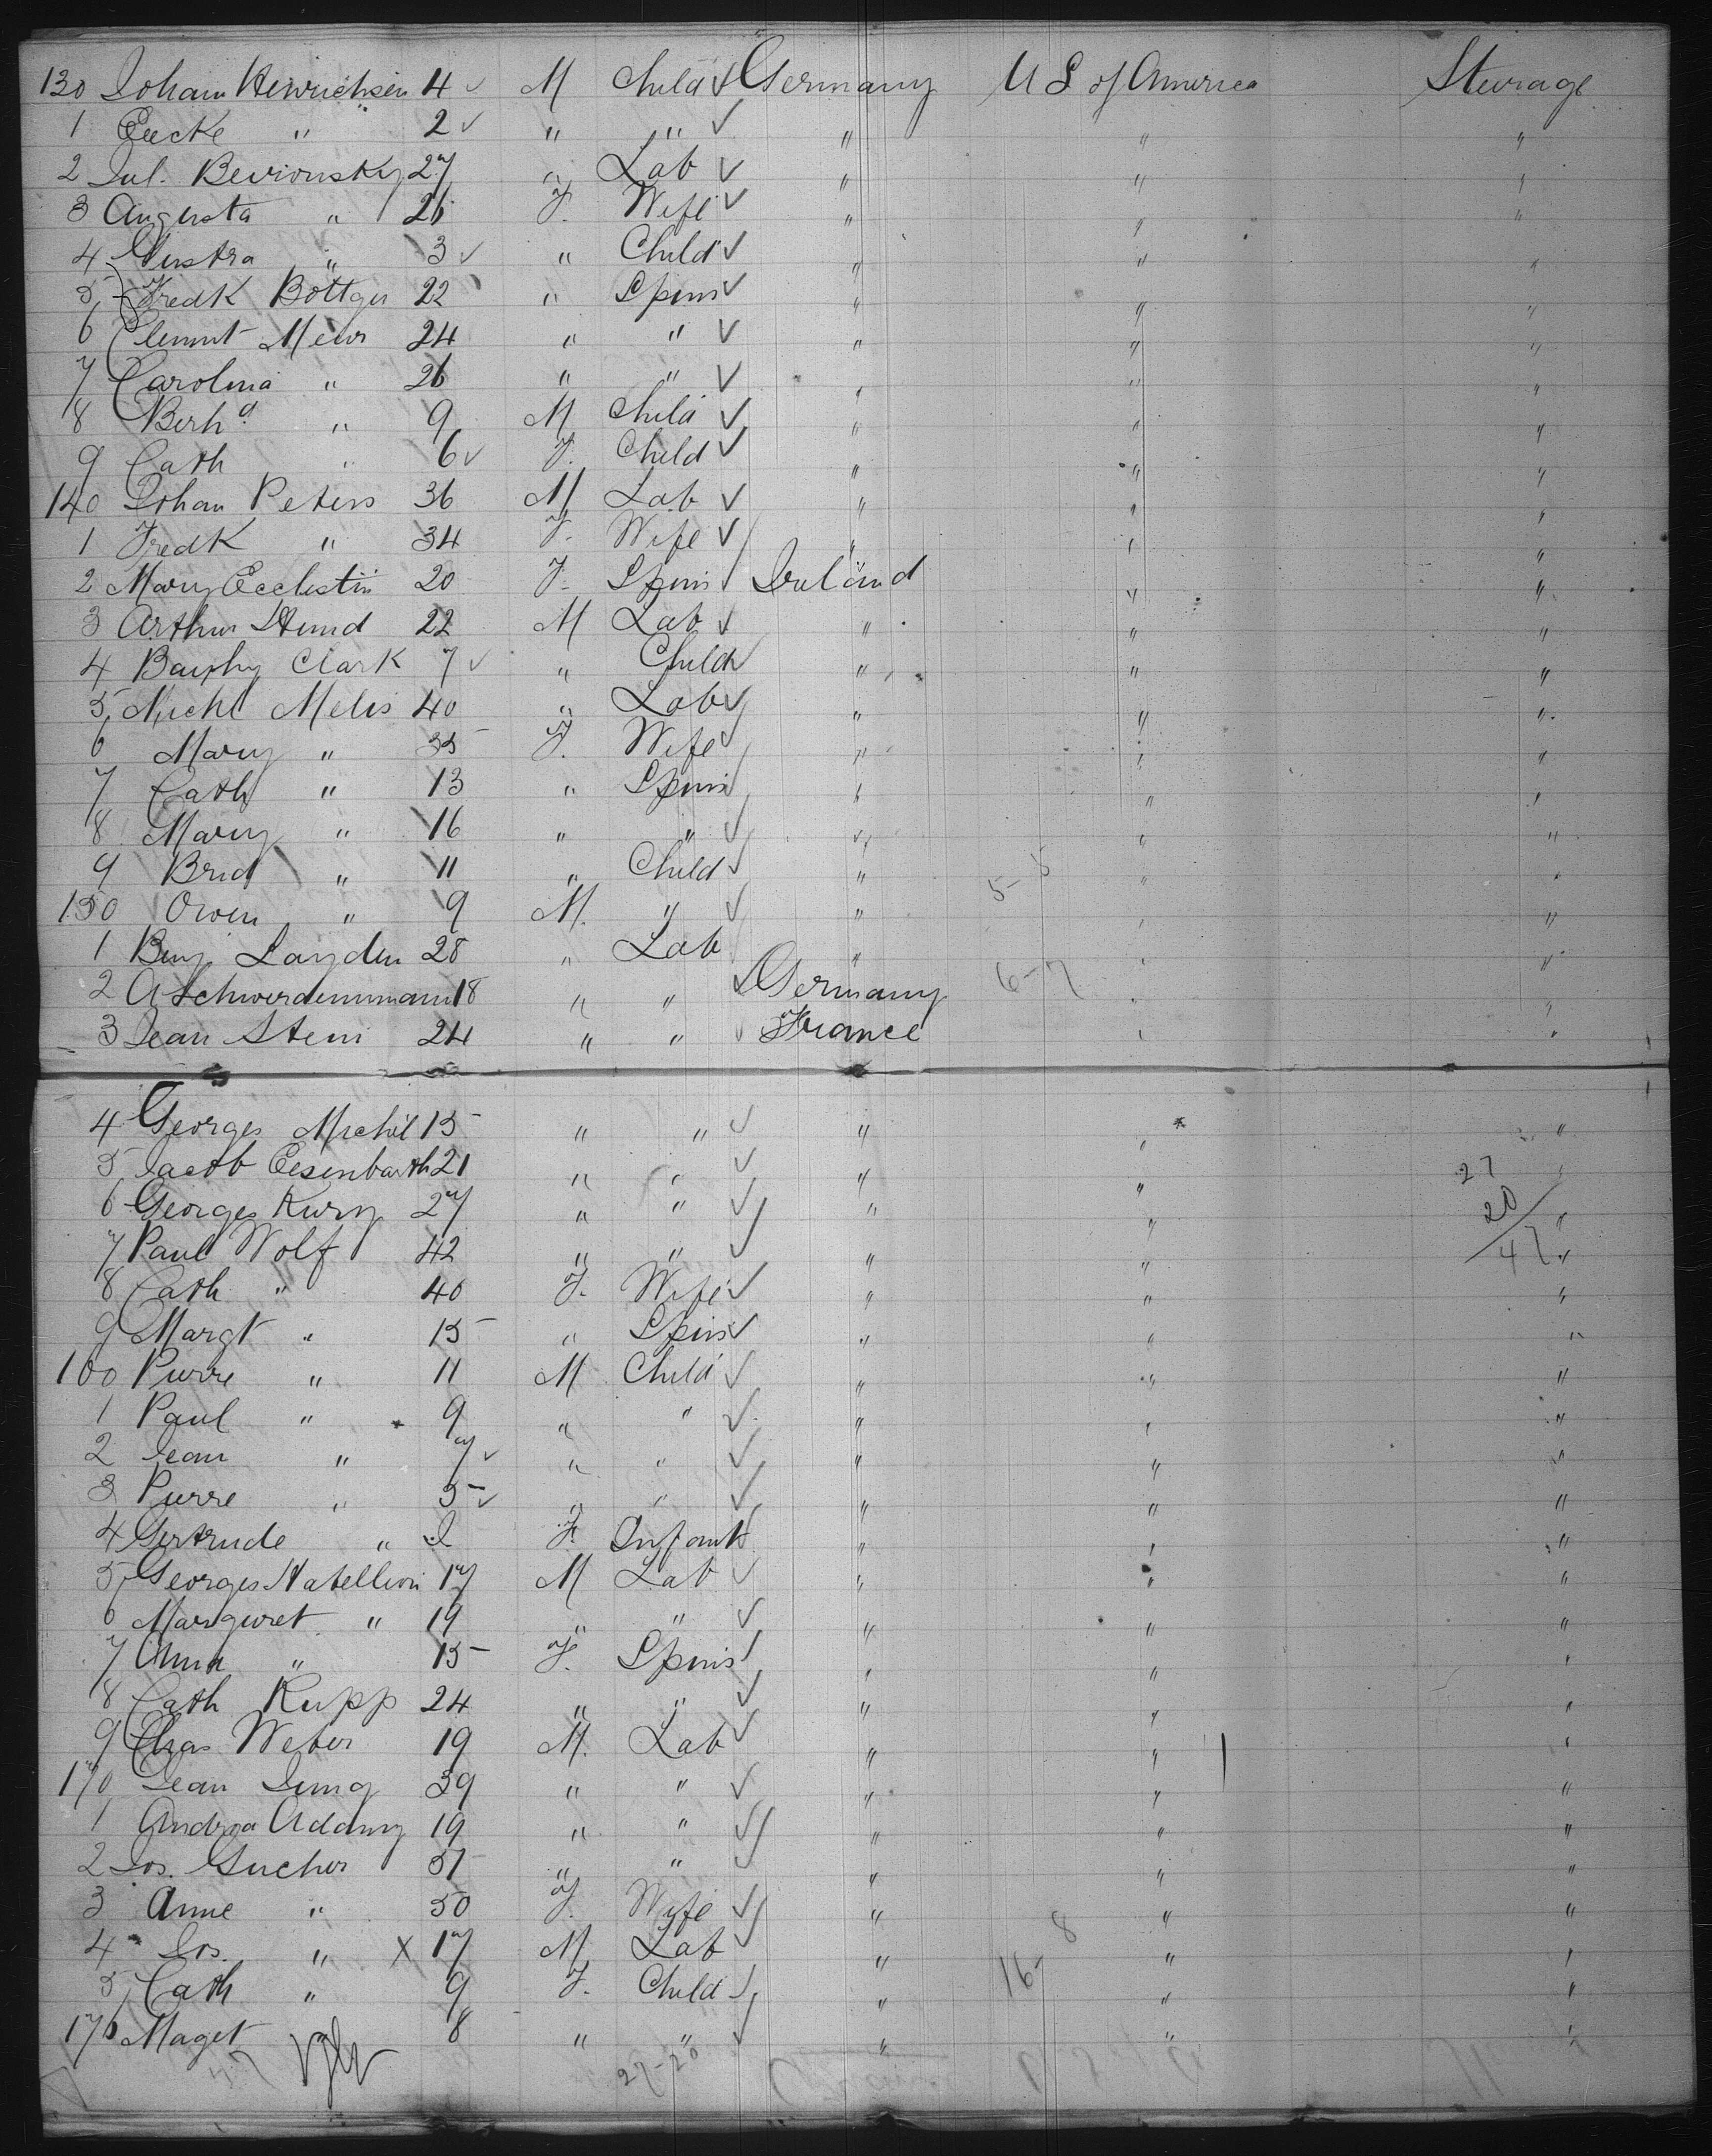 130 Joham Heinrichsen 4 ✓ M Child ✓ Germany U S of America Sterage
1 Eecke " 2 ✓ " " ✓ " " "
2 Jul. Bevionsky 27 " Lab ✓ " " "
3 Augusta " 26 F. Wife ✓ " " "
4 Gustra " 3 ✓ " Child ✓ " " "
5 Fredk Böttger 22 " Spins ✓ " " "
6 Clemnt Meier 24 " " ✓ " " "
7 Carolina " 26 " " ✓ " " "
8 Berhd " 9 M Child ✓ " " "
9 Cath " 6 ✓ F. Child ✓ " " "
140 Johan Peters 36 M Lab ✓ " " "
1 Fredk " 34 F. Wife ✓ " " "
2 Mary Ecclestin 20 F. Spins Ireland " "
3 Arthur Hund 22 M Lab ✓ " " "
4 Clark 7 ✓ " Child ✓ " " "
5 Michl Melis 40 " Lab ✓ " " "
6 Mary " 35 F. Wife ✓ " " "
7 Cath " 13 " Spins " " "
8 Mary " 16 " " ✓ " " "
9 Brid " 11 " Child ✓ " " "
5-5
150 Owen " 9 M. " ✓ " " "
1 Benj. Layden 28 " Lab " " "
2 A Schwerdemmann 18 " " ✓ Germany 6-7 " "
3 Jean Stein 24 " " ✓ France " "
4 Georges Michel 15 " " ✓ " " "
5 Jacob Eisenbarth 21 " " ✓ " " 27 "
6 Georges Kurz 27 " " ✓ " " 20 "
7 Paul Wolf 42 " " ✓ " " 47 "
8 Cath " 40 F. Wife ✓ " " "
9 Margt " 15 " Spins ✓ " " "
160 Pierre " 11 M Child ✓ " " "
1 Paul " 9 " " ✓ " " "
2 Jean " 7 ✓ " " ✓ " " "
3 Pierre " 5 ✓ " " ✓ " " "
4 Gertrude " F. Infant " " "
5 Georges Hatellion 17 M Lab ✓ " " "
6 Margueret " 19 " " ✓ " " "
7 Anna " 15 F. Spins " " "
8 Cath Rupp 24 " " ✓ " " "
9 Chas Weber 19 M. Lab ✓ " " "
170 Jean Jung 39 " " ✓ " " "
1 Andrea Addamy 19 " " ✓ " " "
2 Jos. Gucher 51 " " ✓ " " "
3 Anne " 50 F. Wife ✓ " " "
4 Jos. " X 17 M Lab ✓ " 16-8 " "
5 Cath " 9 F. Child ✓ " " "
176 Maget 8 " " ✓ " " "
47 27-20